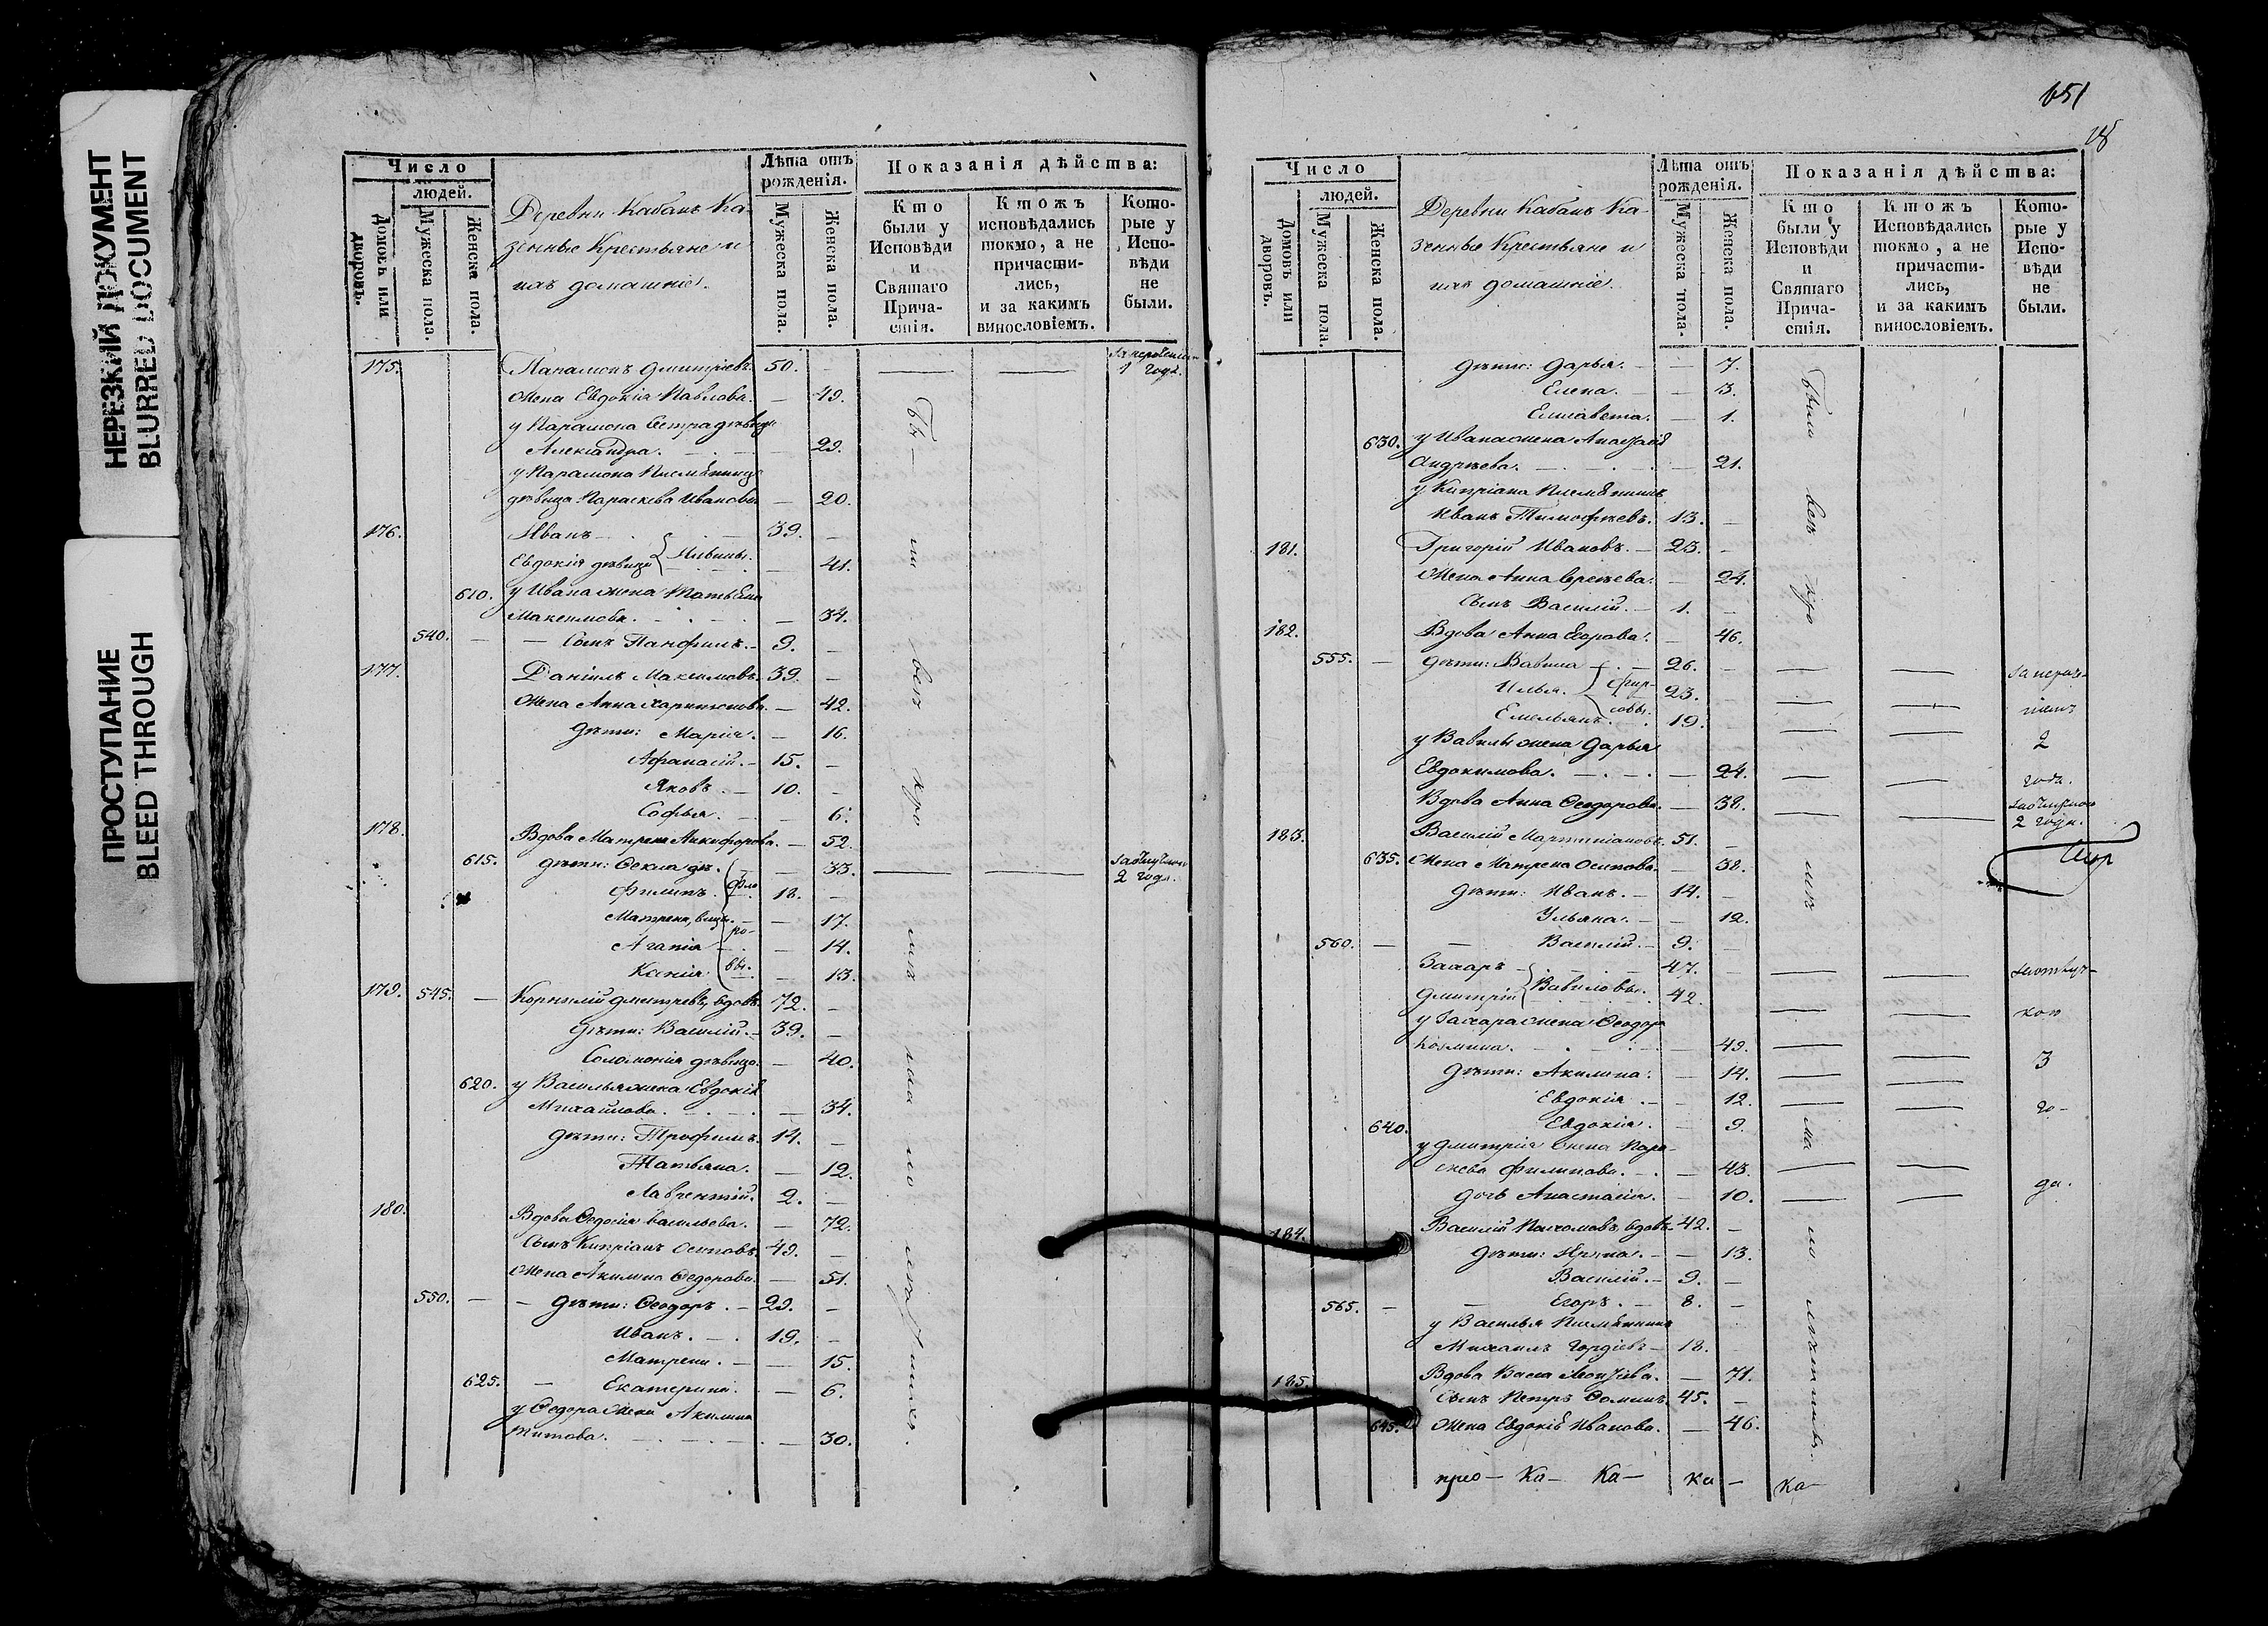 НЕРЕЗКИЙ ДОКУМЕНТ
BLURRED DOCUMENT
ПРОСТУПАНИЕ
BLEED THROUGH
Число
людей.
Домовъ или дворовъ.
Мужеска пола.
Женска пола.
Деревни Кабанъ Ка-
зенные Крестьяне и
ихъ домашніе.
Лѣта отъ рожденія.
Мужеска пола.
Женска пола.
Показанія дѣйства:
Кто были у Исповѣди и Святаго Прича-стія.
Ктожъ исповѣдались токмо, а не причасти-лись, и за какимъ винословіемъ.
Кото-рые у Испо-вѣди не были.
175. Парамонъ Дмитріевъ 50. — — 1 годъ.
Жена Евдокія Павлова. — 49.
у Парамона Сестра дѣвица
Александра. — 29.
у Парамона Племянница
дѣвица Параскева Иванова — 20.
176. Иванъ — 39. —
Евдокія дѣвица — 41.
610. у Ивана жена Татьяна
Максимова. — 34.
540. — — Сынъ Панфилъ. — 9. —
177. Даніилъ Максимовъ. 39. —
Жена Анна Харитонова. — 42.
Дѣти: Марія. — 16.
Афанасій. — 15. —
Яковъ. — 10. —
Софья. — 6.
178. Вдова Матрена Никифорова. — 52.
615. Дѣти: Фекла дѣ. — 33. — — 2 года.
Филипъ. Фло 18. —
Матрена, вицы. — 17.
ро-
Агапія — 14.
вы.
Ксенія — 13.
179. 545. — Корнилій Дмитревъ, вдовъ. 72. —
Дѣти: Василій. — 39. —
Соломонія дѣвица. — 40.
620. у Василья жена Евдокія
Михайлова. — 34.
Дѣти: Трофимъ. 14. —
Татьяна. — 12.
Лаврентій. 2. —
180. Вдова Федосія Васильева. — 72.
Сынъ Кипріанъ Осиповъ. 49. —
Жена Акилина Федорова. — 51.
550. — — Дѣти: Феодоръ. — 29. —
Иванъ. — 19. —
Матрена. — 15.
625. — Екатерина. — 6.
у Федора Жена Акилина
Титова. — 30.
651
Число
людей.
Домовъ или дворовъ.
Мужеска пола.
Женска пола.
Деревни Кабанъ Ка-
зенные Крестьяне и
ихъ домашніе.
Лѣта отъ рожденія.
Мужеска пола.
Женска пола.
Показанія дѣйства:
Кто были у Исповѣди и Святаго Прича-стія.
Ктожъ Исповѣдались токмо, а не причасти-лись, и за какимъ винословіемъ.
Кото-рые у Испо-вѣди не были.
Дѣти: Дарья. — — 7.
Елена. — — 3.
Елисавета. — 1.
630. у Ивана жена
Андреева. — 21.
у Кипріана Племянникъ
Иванъ Тимофеевъ. 13. —
181. Григорій Ивановъ. — 23. —
Жена Анна Сергеева. — 24.
Сынъ Василій. — 1. —
182. Вдова Анна Егорова. — 46.
555. — Дѣти: Вавила — 26. — —
Илья. Фир- 23. — —
совы.
Емельянъ. 19. — —
2
у Вавилы жена Дарья
Евдокимова. — 24. — — года.
Вдова Анна Феодорова. — 38. — 2 года.
183. Василій Мартиніановъ. 51. —
635. Жена Матрена Осипова. — 38.
Дѣти: Иванъ. — 14. —
Ульяна. — — 12.
560. — — Василій. — 9. —
Захаръ — 47. — —
Дмитрій Вавиловы. 42. — —
кою
у Захара жена Феодора
Козмина. — 49. — — 3
Дѣти: Акилина. — 14. — —
Евдокія. — 12. — — го-
640. Евдокія. — 9. — —
у Дмитрія жена Пара-
скева Филипова. — 43. — — да.
дочь Анастасія. — 10. — —
184. Василій Пахомовъ, вдовъ. 42. —
Дѣти: Ирина. — — 13.
Василій. — 9. —
565. — — Егоръ. — 8. —
у Василья Племянникъ
Михаилъ Гордіевъ — 18. —
185. Вдова Васса Леонтіева. — 71.
Сынъ Петръ Фоминъ. 45. —
645. Жена Евдокія Иванова. — 46.
Ка — Ка — ка — ка —